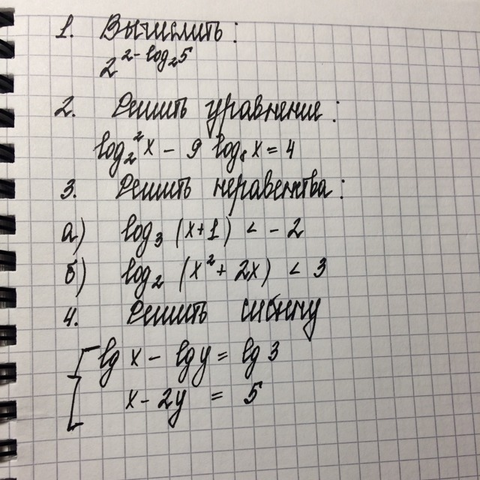 1. Вычислить:
2^{2-log_2 5}
2. Решить уравнение:
log_2^2 x - 9 log_8 x = 4
3. Решить неравенства:
а) log_3 (x+1) < -2
б) log_2 (x^2 + 2x) < 3
4. Решить систему
lg x - lg y = lg 3
x - 2y = 5